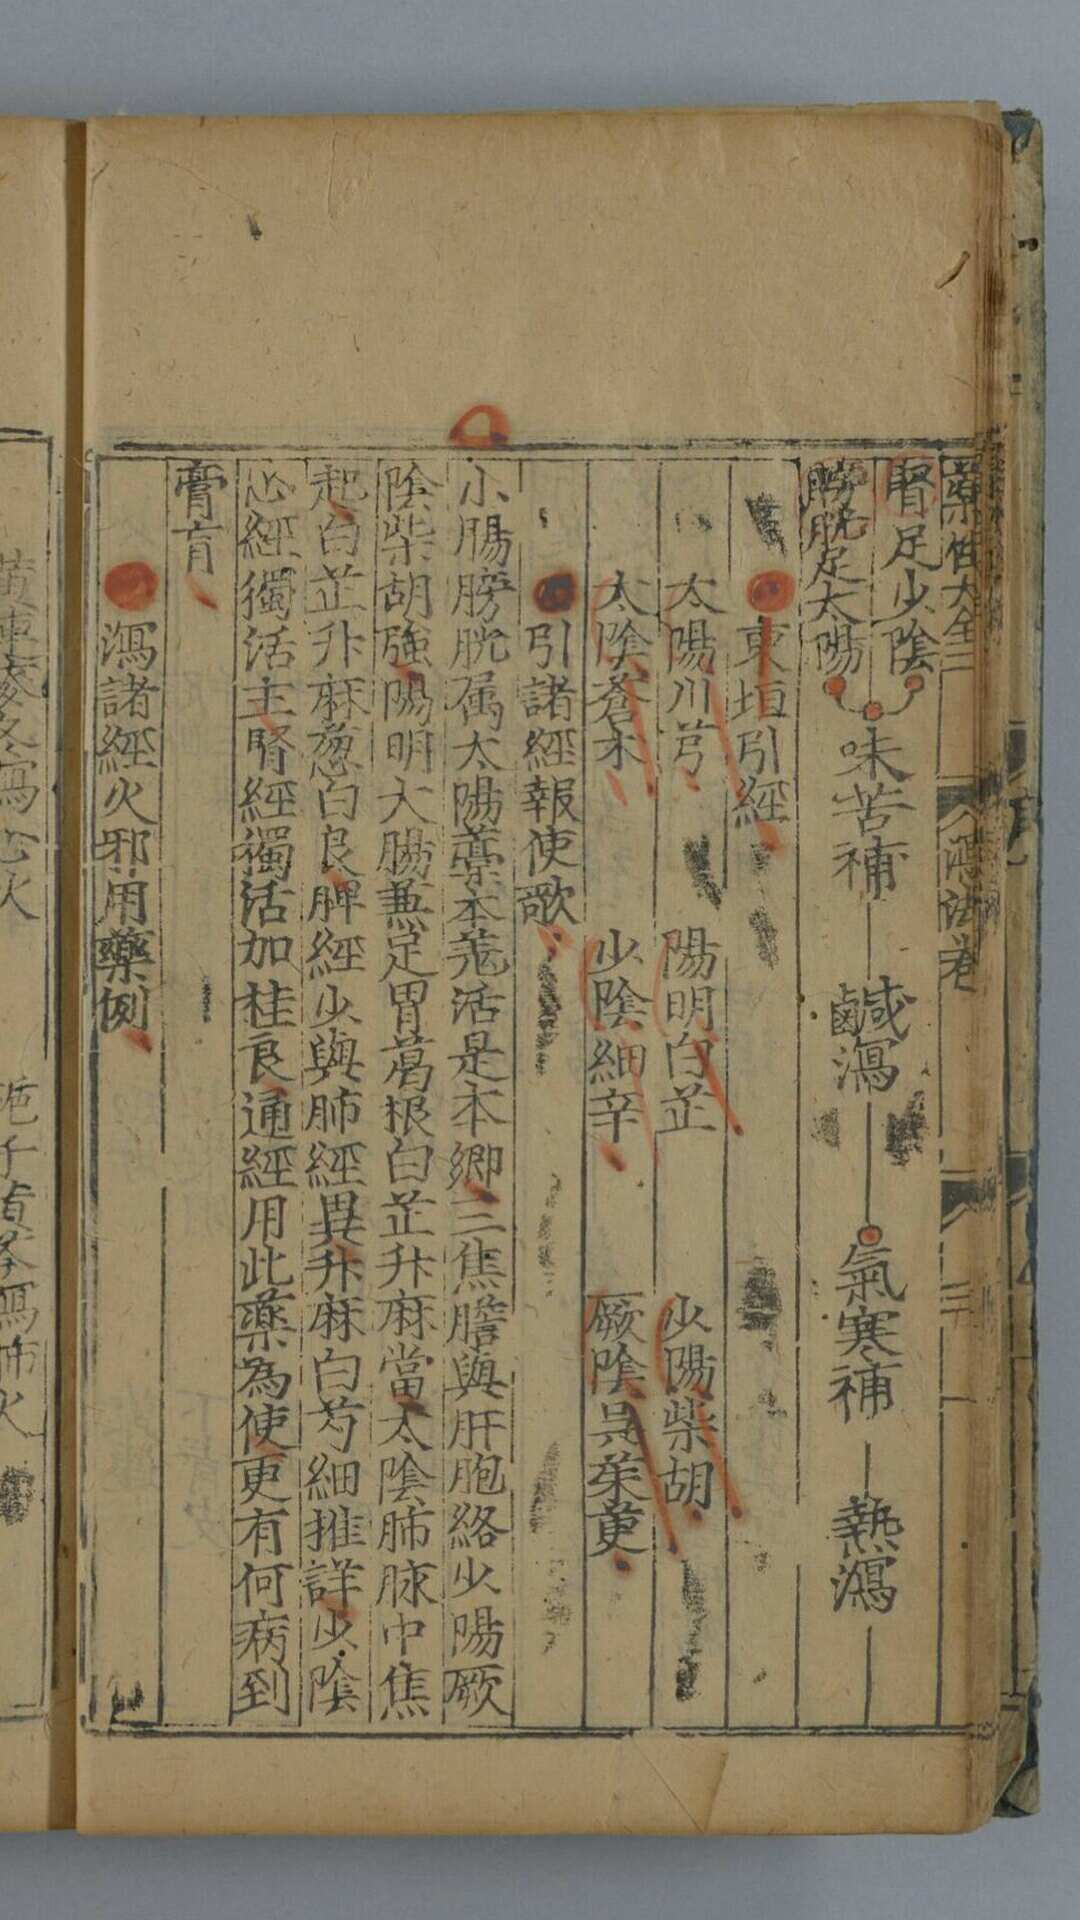 腎足少陰
膀胱足太陽
味苦補 鹹瀉 氣寒補 熱瀉
東垣引經
太陽川芎 陽明白芷 少陽柴胡
太陰蒼朮 少陰細辛 厥陰吳茱萸
引諸經報使歌
小腸膀胱属太陽藁本羗活是本鄉三焦膽與肝胞絡少陽厥
陰柴胡強陽明大腸兼足胃葛根白芷升麻當太陰肺脉中焦
起白芷升麻葱白良脾經少與肺經異升麻白芍細推詳少陰
心經獨活主腎經獨活加桂良通經用此藥為使更有何病到
膏肓
瀉諸經火邪用藥例